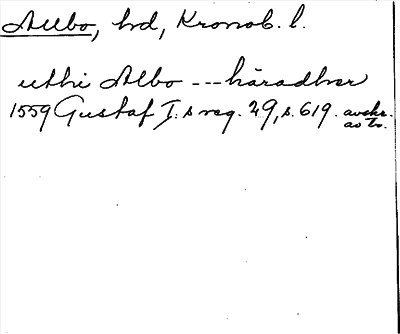 Allbo, hd, Kronob. l.
uthi Albo --- häradher
1559 Gustaf I:s reg. 29, s. 619. avskr.
av to.